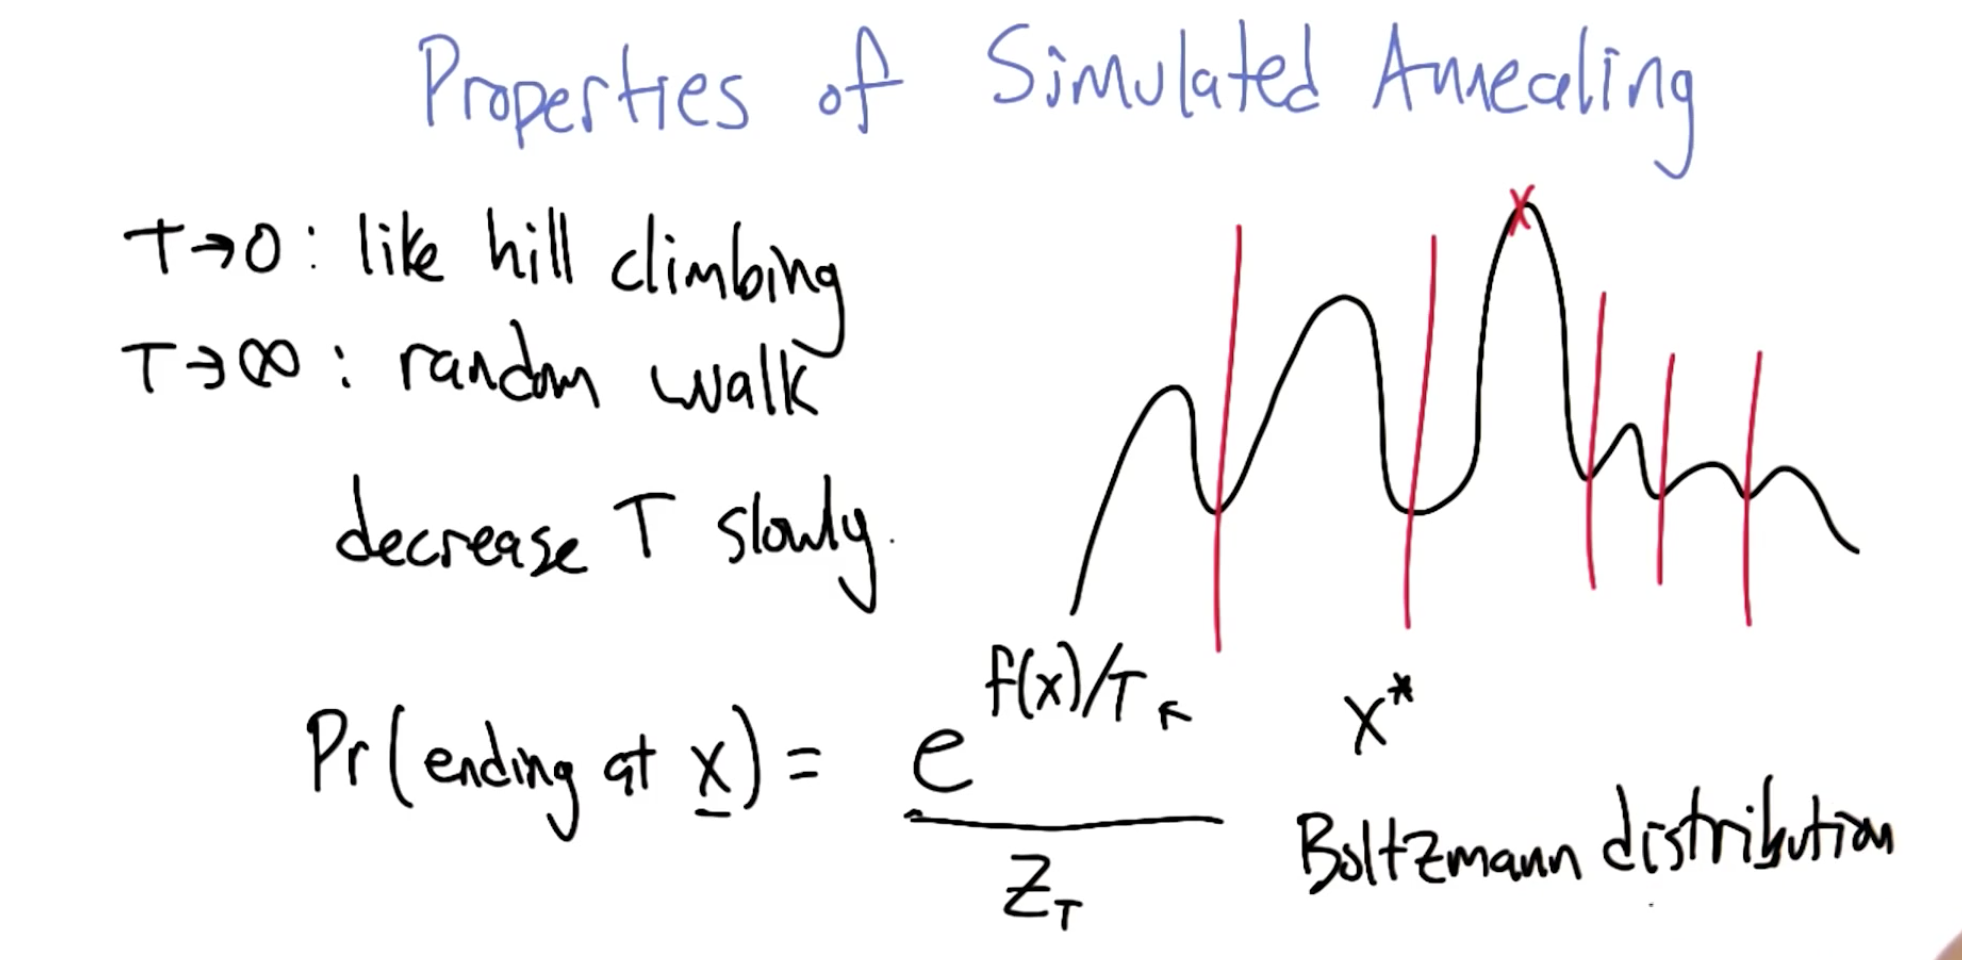 Properties of Simulated Annealing
T→0: like hill climbing
T→∞: random walk
decrease T slowly.
x
Pr(ending at x) = e^{f(x)/T} / Z_T
x*
Boltzmann distribution